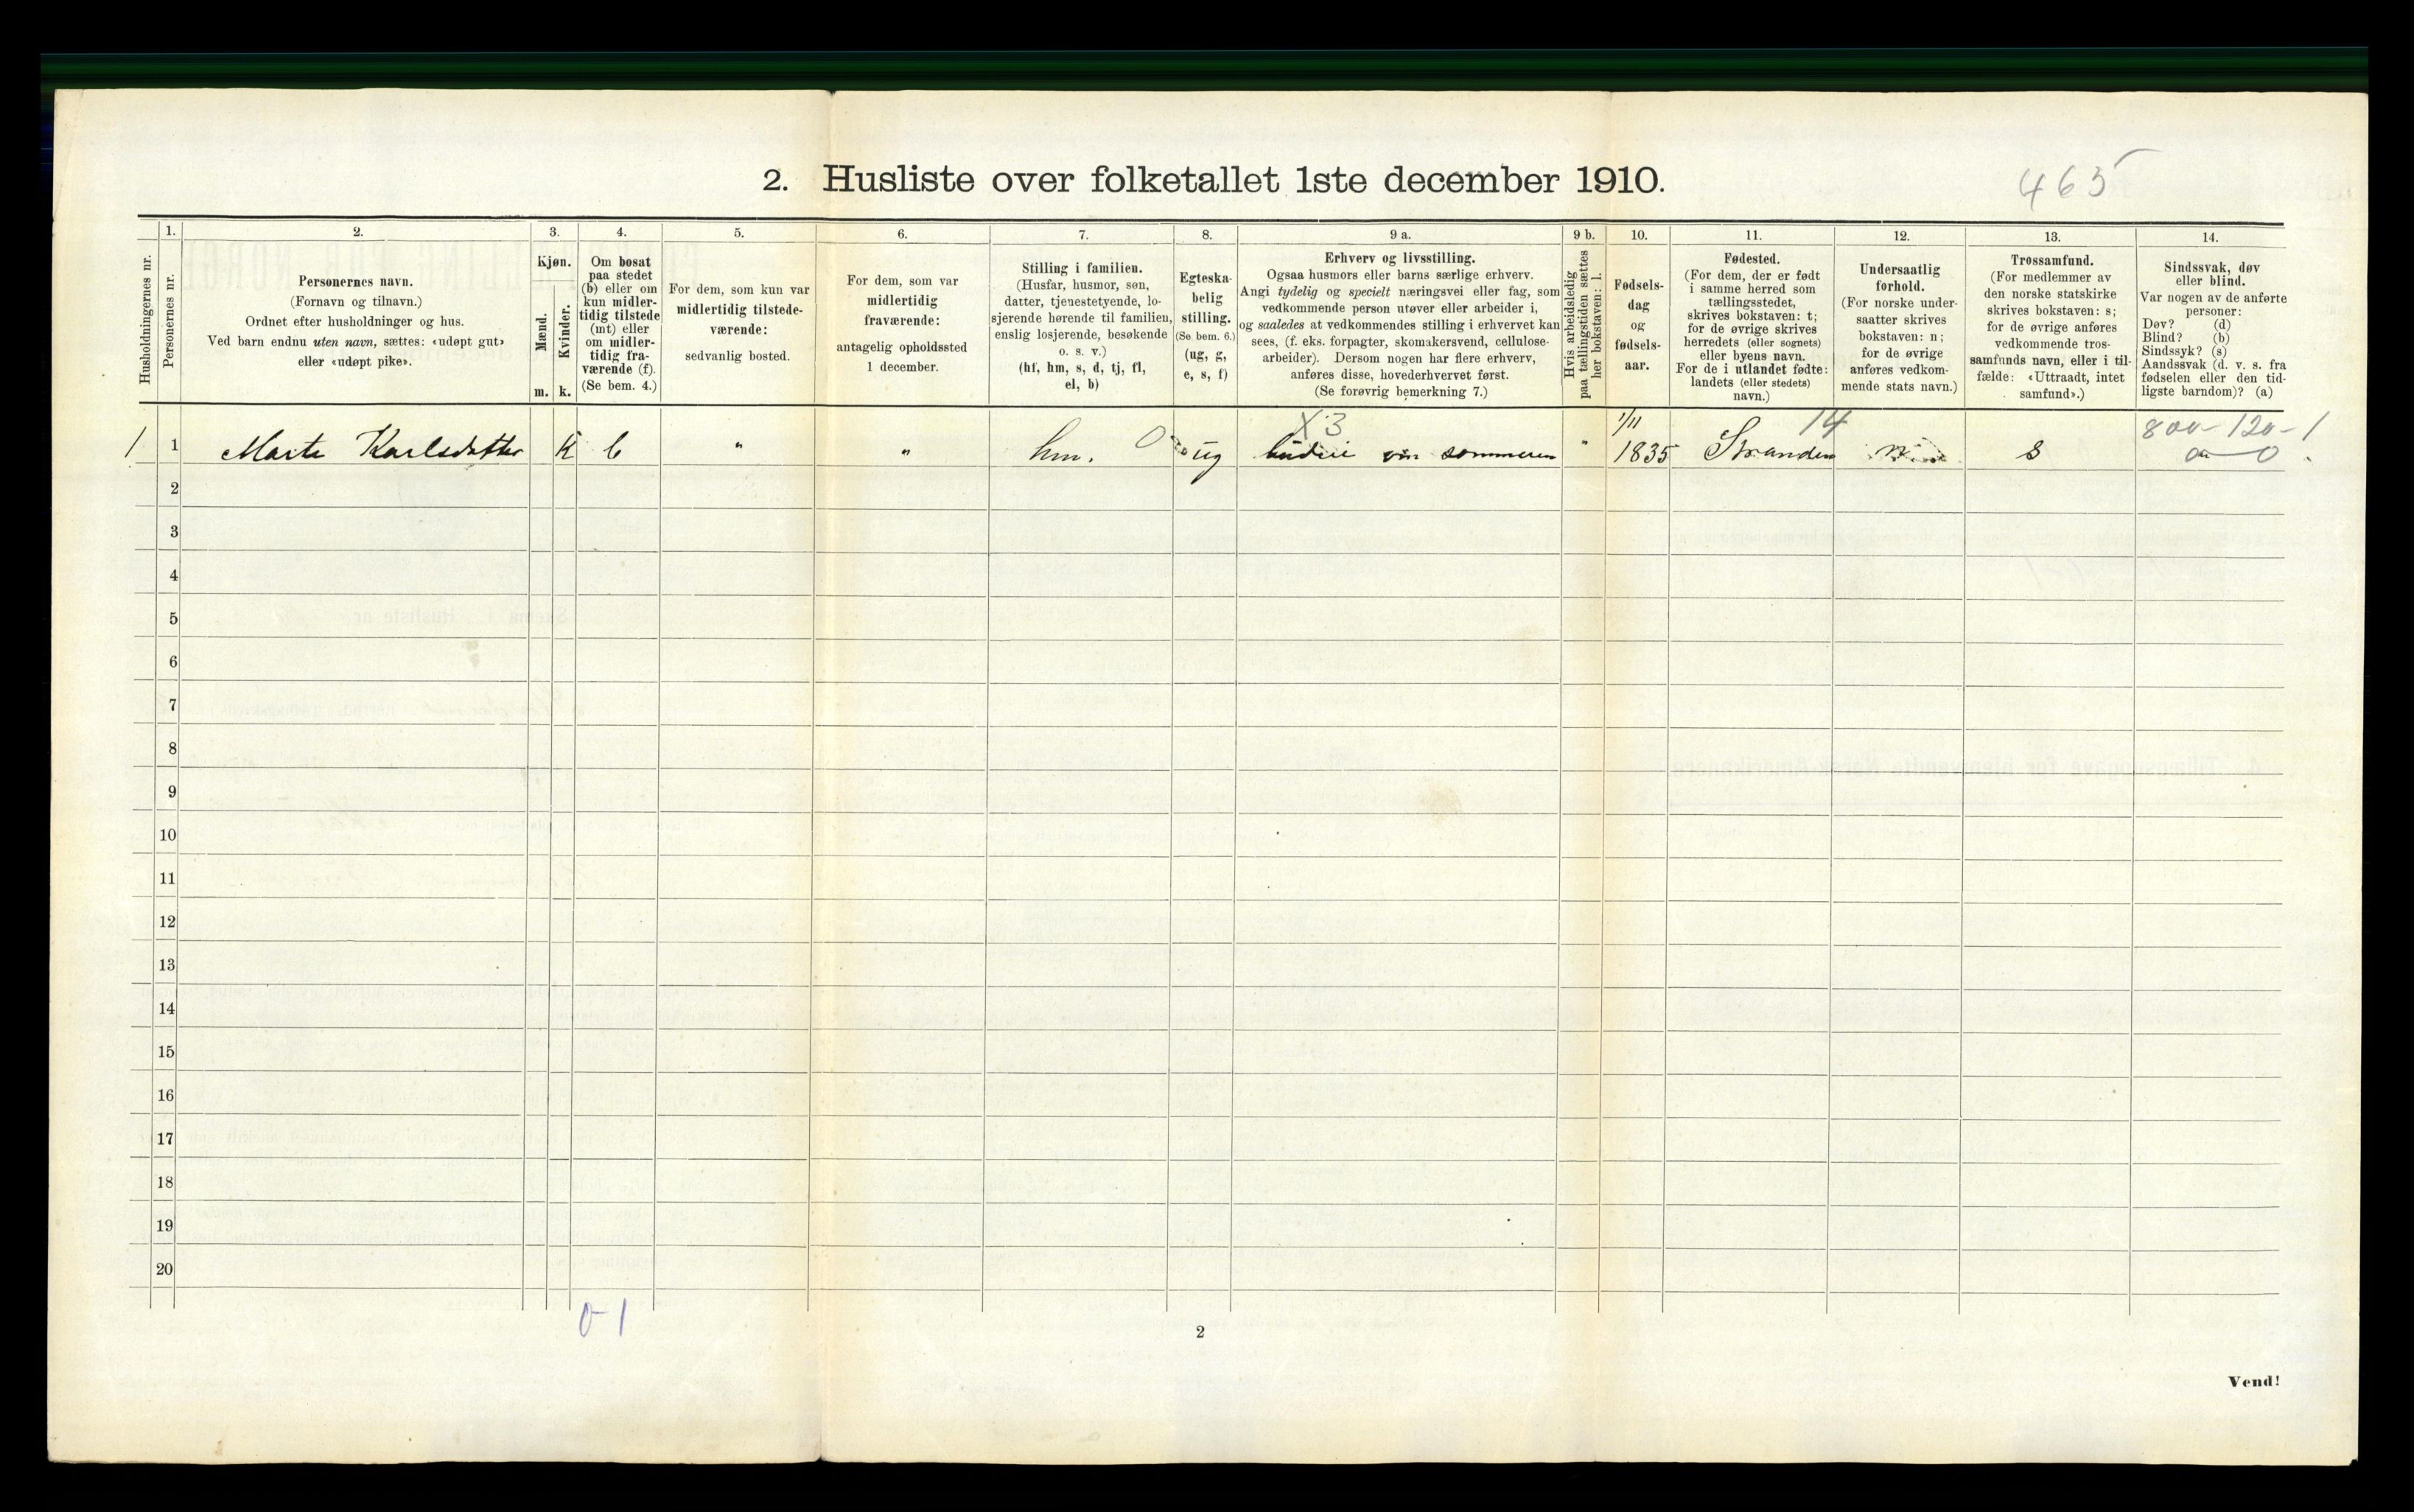 2. Husliste over folketallet 1ste december 1910.
465
Husholdningernes nr.
1.
Personernes nr.
2.
Personernes navn.
(Fornavn og tilnavn.)
Ordnet efter husholdninger og hus.
Ved barn endnu uten navn, sættes: «udøpt gut»
eller «udøpt pike».
3.
Kjøn.
Mænd.
Kvinder.
m. k.
4.
Om bosat
paa stedet
(b) eller om
kun midler-
tidig tilstede
(mt) eller
om midler-
tidig fra-
værende (f).
(Se bem. 4.)
5.
For dem, som kun var
midlertidig tilstede-
værende:
sedvanlig bosted.
6.
For dem, som var
midlertidig
fraværende:
antagelig opholdssted
1 december.
7.
Stilling i familien.
(Husfar, husmor, søn,
datter, tjenestetyende, lo-
sjerende hørende til familien,
enslig losjerende, besøkende
o. s. v.)
(hf, hm, s, d, tj, fl,
el, b)
8.
Egteska-
belig
stilling.
(Se bem. 6.)
(ug, g,
e, s, f)
9 a.
Erhverv og livsstilling.
Ogsaa husmors eller barns særlige erhverv.
Angi tydelig og specielt næringsvei eller fag, som
vedkommende person utøver eller arbeider i,
og saaledes at vedkommendes stilling i erhvervet kan
sees, (f. eks. forpagter, skomakersvend, cellulose-
arbeider). Dersom nogen har flere erhverv,
anføres disse, hovederhvervet først.
(Se forøvrig bemerkning 7.)
9 b.
Hvis arbeidsledig
paa tællingstiden sættes
her bokstaven: l.
10.
Fødsels-
dag
og
fødsels-
aar.
11.
Fødested.
(For dem, der er født
i samme herred som
tællingsstedet,
skrives bokstaven: t;
for de øvrige skrives
herredets (eller sognets)
eller byens navn.
For de i utlandet fødte:
landets (eller stedets)
navn.)
12.
Undersaatlig
forhold.
(For norske under-
saatter skrives
bokstaven: n;
for de øvrige
anføres vedkom-
mende stats navn.)
13.
Trossamfund.
(For medlemmer av
den norske statskirke
skrives bokstaven: s;
for de øvrige anføres
vedkommende tros-
samfunds navn, eller i til-
fælde: «Uttraadt, intet
samfund».)
14.
Sindssvak, døv
eller blind.
Var nogen av de anførte
personer:
Døv? (d)
Blind? (b)
Sindssyk? (s)
Aandssvak (d. v. s. fra
fødselen eller den tid-
ligste barndom)? (a)
X3 1/11 14 800-120-1
1 1 Marte Karlsdatter K b " " hm. 0 ug budeie om sommeren " 1835 Stranden n s 0
2
3
4
5
6
7
8
9
10
11
12
13
14
15
16
17
18
19
20
0-1
2
Vend!